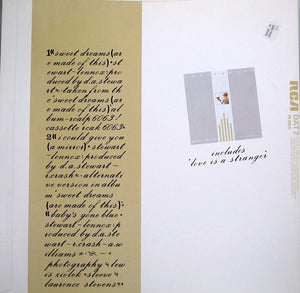 1# sweet dreams (ar
e made of this) • st
ewart-lennox: pro
duced by d.a.stew
art • taken from th
e 'sweet dreams (ar
e made of this)' al
bum - rcalp 6063!
cassette rcak 6063 •
2# i could give you
(a mirror) • stewart
-lennox • produced
by d.a.stewart-
r.crash • alternati
ve version in albu
m 'sweet dreams
(are made of this)'
# baby's gone blue •
stewart-lennox • pr
oduced by d.a.ste
wart-r.crash-a.w
illiams •
photography • lew
is ziolek • sleeve •
laurence stevens •
includes
'love is a stranger'
RCA
DA 2